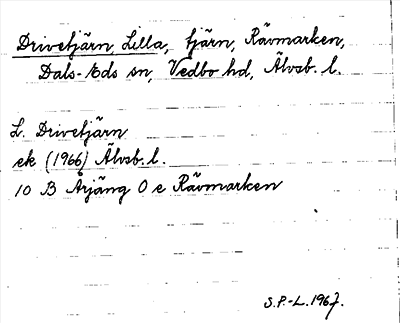 Drivetjärn, Lilla, tjärn, Rävmarken,
Dals-Eds sn, Vedbo hd, Älvsb. l.
L. Drivetjärn
ek (1966) Älvsb. l.
10 B Årjäng O e Rävmarken
S.P.-L. 1967.